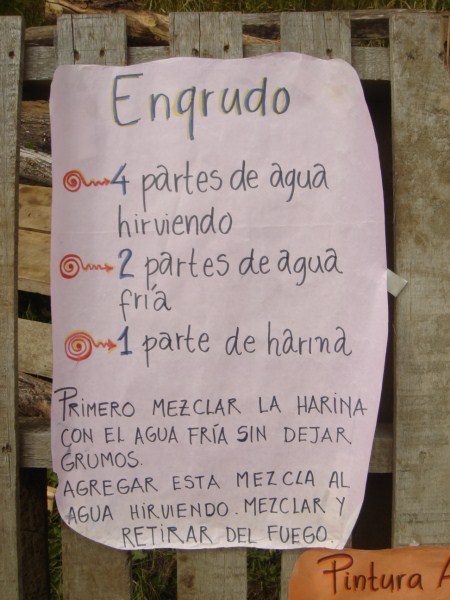 Engrudo
4 partes de agua
hirviendo
2 partes de agua
fría
1 parte de harina
PRIMERO MEZCLAR LA HARINA
CON EL AGUA FRÍA SIN DEJAR
GRUMOS.
AGREGAR ESTA MEZCLA AL
AGUA HIRVIENDO. MEZCLAR Y
RETIRAR DEL FUEGO.
Pintura A